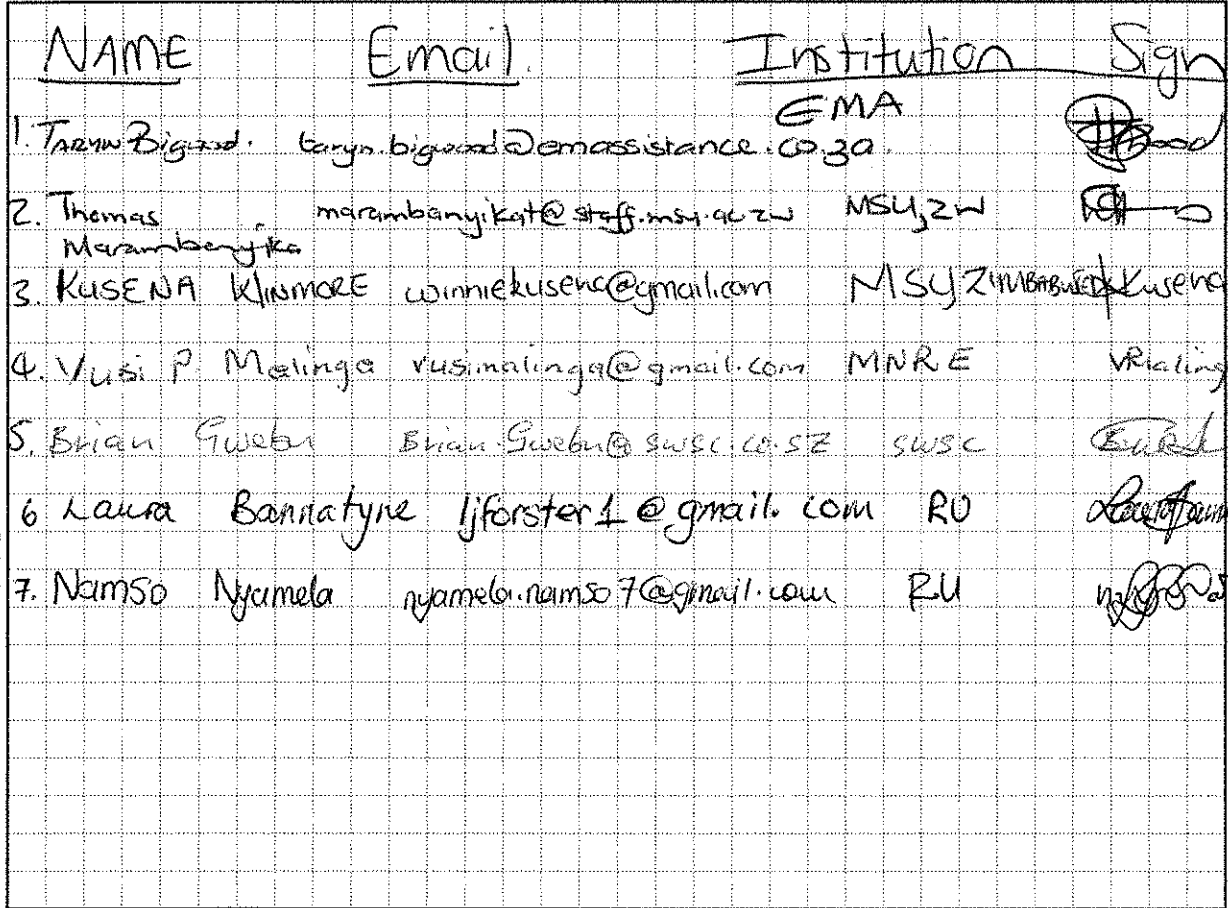 NAME Email. Institution Sign
EMA
1. TARYN Bigwood. taryn.bigwood@emassistance.co.za.
2. Thomas marambanyikat@staff.msu.ac.zw MSU, ZW
Marambanyika
3. KUSENA WINMORE winniekusena@gmail.com MSU ZIMBABWE Kusena
4. Vusi P Malinga vusimalinga@gmail.com MNRE
5. Brian Gwebu Brian.Gwebu@swsc.co.sz swsc
6 Laura Bannatyne ljforster1@gmail.com RU
7. Namso Nyamela nyamela.namso7@gmail.com RU